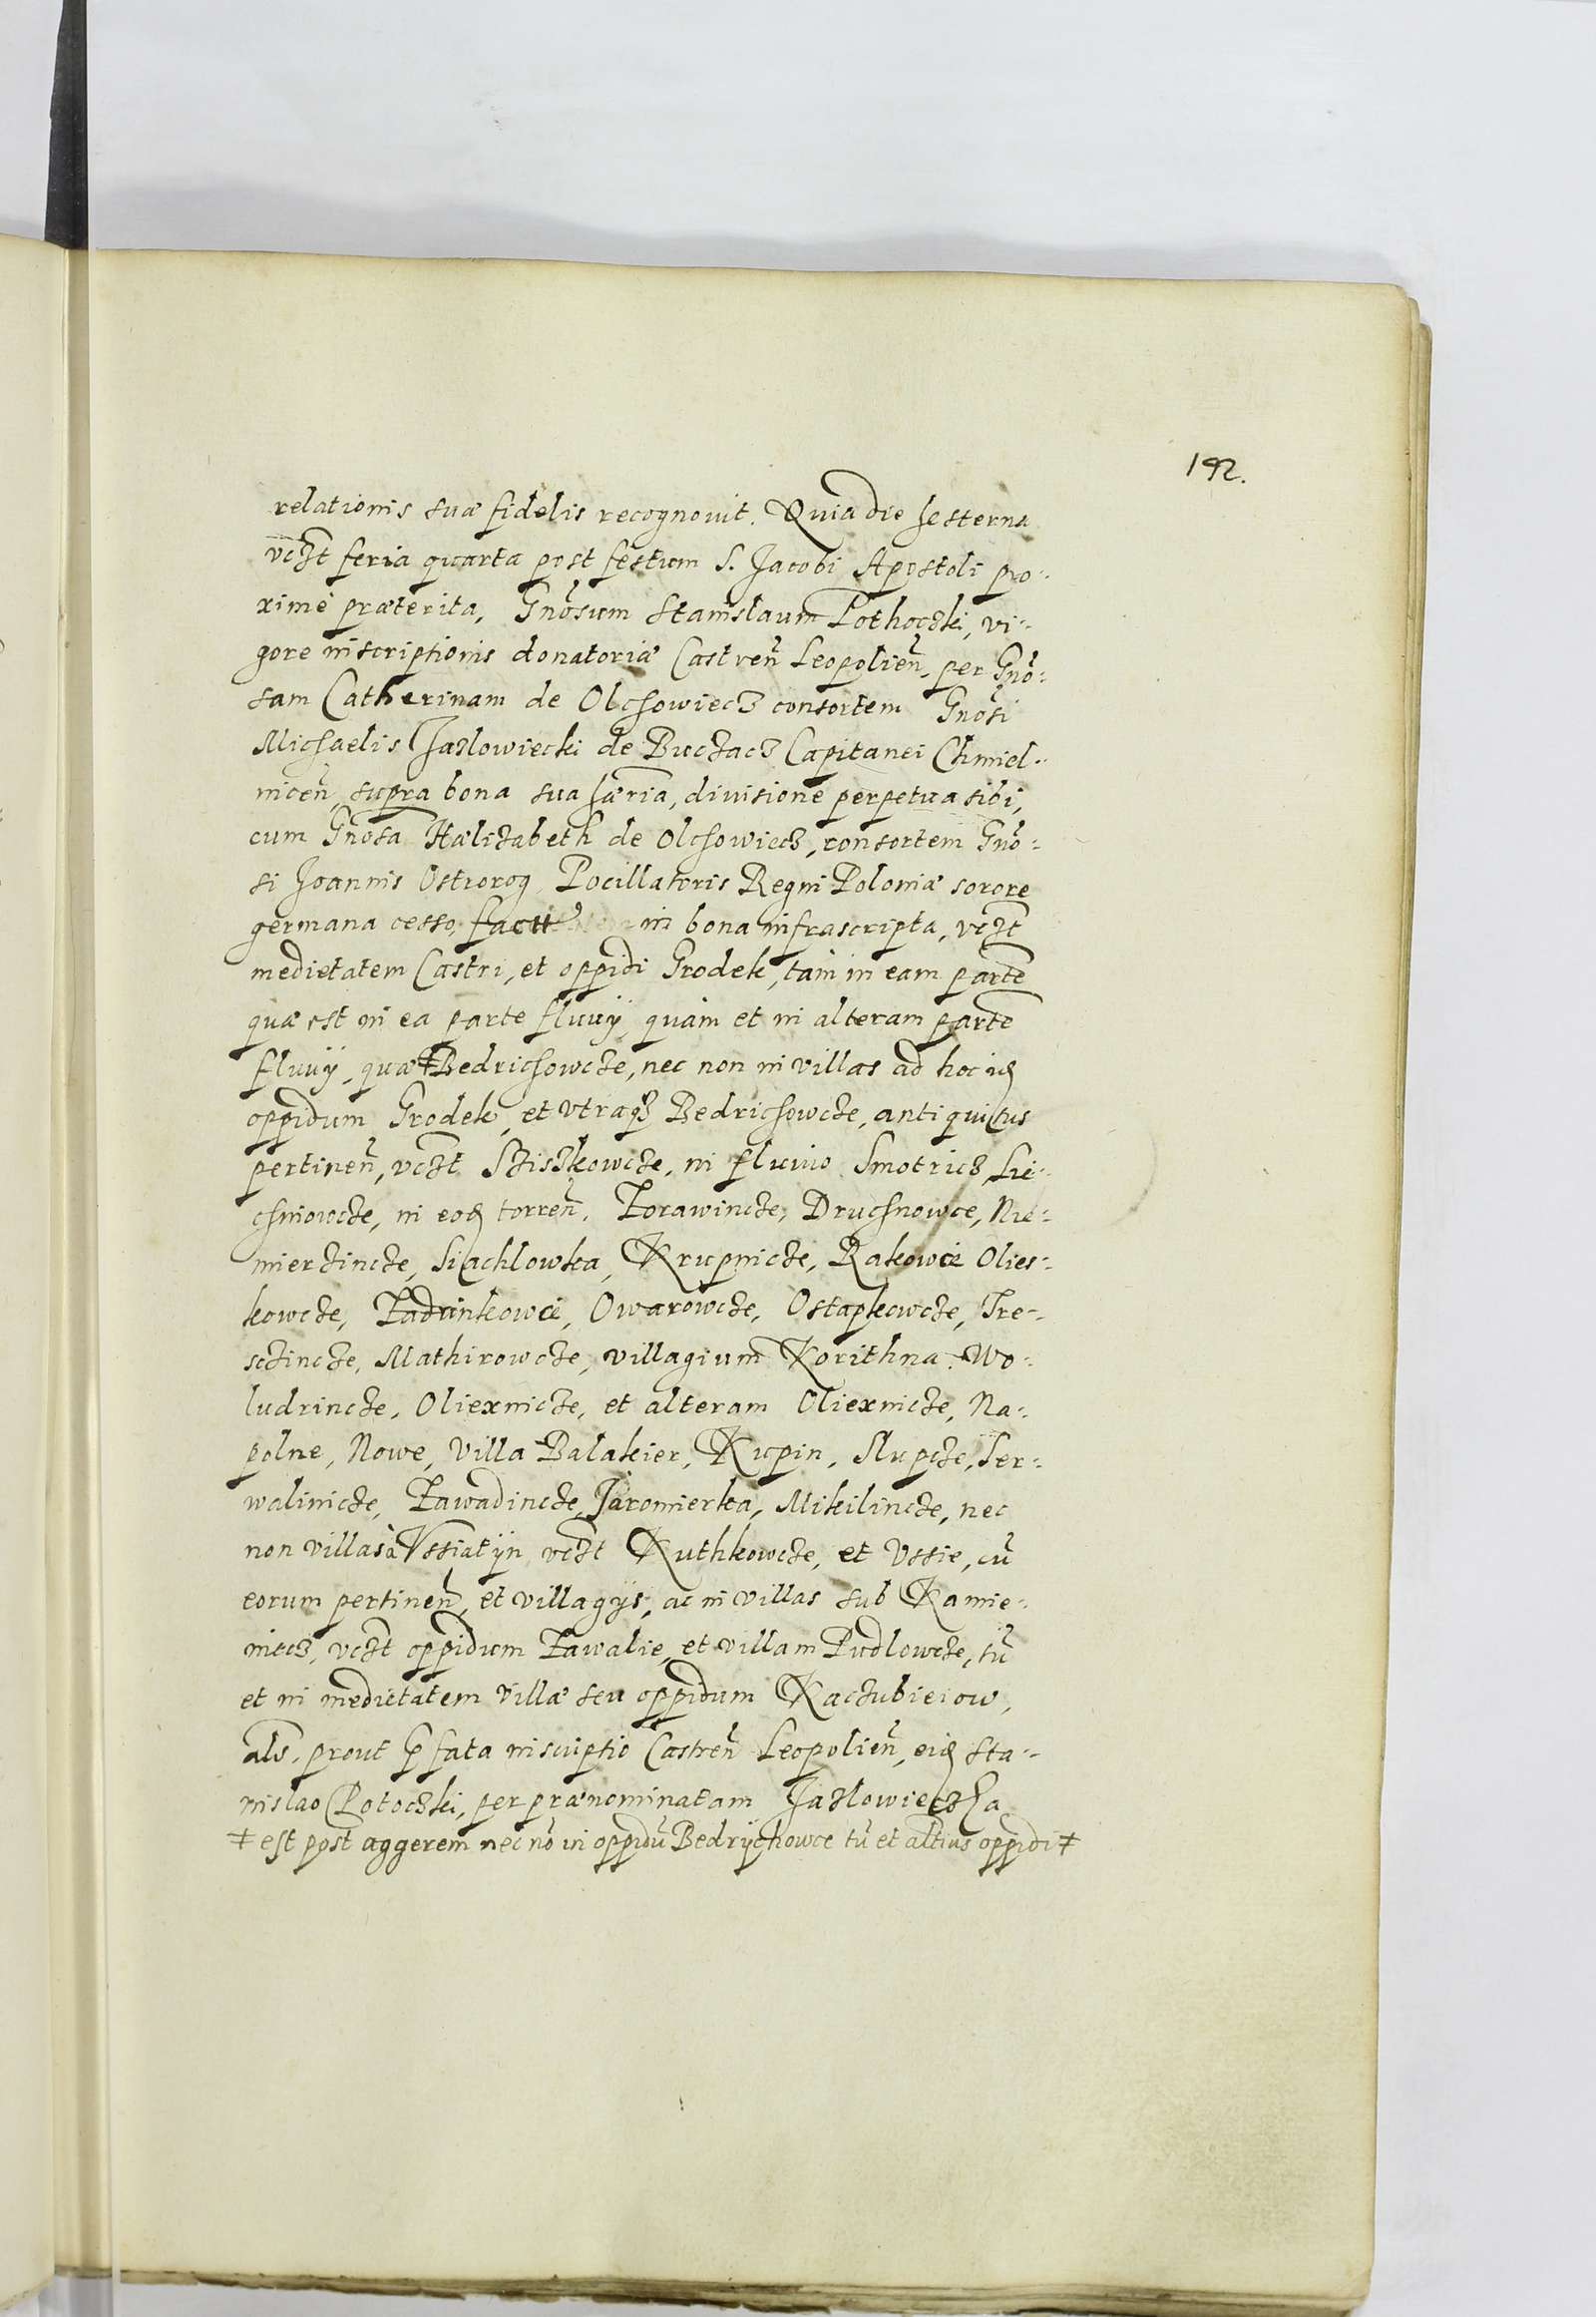 192.
relationis suæ fidelis recognouit. Quia die hesterna
vczt feria quarta post festum S. Jacobi Apostoli pro-
ximè præterita, Gnosum Stanislaum Pothoczki, vi-
gore inscriptionis donatoriæ Castren̄ Leopolien̄, per Gno-
sam Catherinam de Olchowiecz consortem Gnosi
Michaelis Jazlowiecki de Buczacz Capitanei Chmiel-
nicen̄, supra bona sua hæria, divisione perpetua sibi,
cum Gnosa Hælizabeth de Olchowiecz, consortem Gno-
si Joannis Ostrorog Pocillatoris Regni Poloniæ sorore
germana cesso, in bona infrascripta, vczt
medietatem Castri, et oppidi Grodek, tàm in eam parte
quæ est in ea parte fluuij, quàm et in alteram parte
fluuij, quæ ǂ Bedrichowcze, nec non in villas ad hoc id
oppidum Grodek, et vtraqз Bedrichowcze, antiquitus
pertinen̄, vczt Sziszkowcze, in fluuio Smotricz, Lie-
chniowcze, in eod torren̄, Zorawincze, Druchnowce, Nie-
mierzincze, Siachlowka, Krupnicze, Rakowce Olies-
kowcze, Zadunkowce, Owarowcze, Ostapkowcze, Tre-
sczincze, Mathirowcze, villagium Korithna. Wo-
ludrincze, Oliexnicze, et alteram Oliexnicze, Na-
polne, Nowe, Villa Balakier, Kupin, Slupcze, Ser-
walinicze, Zawadincze, Jaromierka, Mikilincze, nec
non villas à Vssiatyn vczt Kuthkowcze, et Vssie, cū
eorum pertinen̄, et villagijs, ac in villas sub Kamie-
niecz, vczt oppidum Zawalie, et villam Pudlowcze, tū
et in medietatem villæ seu oppidum Kaczubieiow,
als. prout p̄fata inscriptio Castren̄ Leopolien̄, eid Sta-
nislao Potoczki, per prænominatam Jazlowieczka
ǂ est post aggerem nec nō in oppidū Bedrychowce tū et altius oppidi ǂ